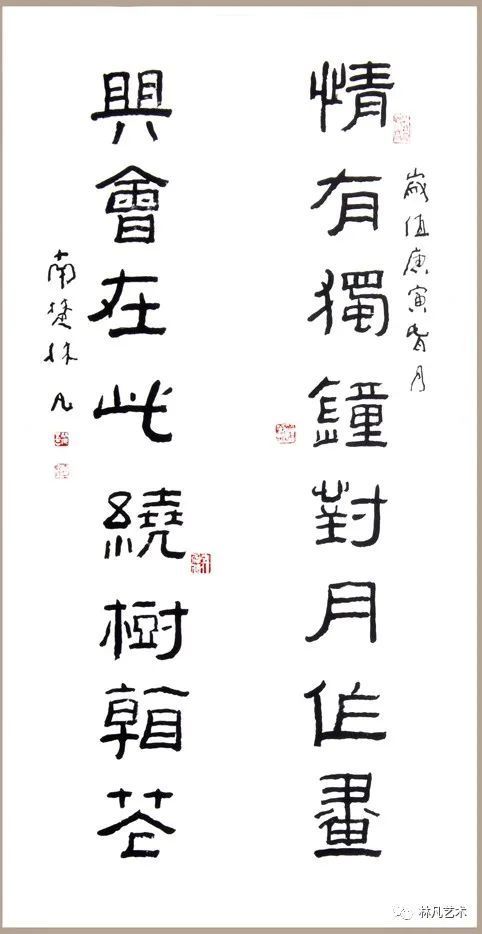 歲值庚寅春月
情有獨鐘對月作畫
興會在此繞樹花
南楚林凡
林凡艺术